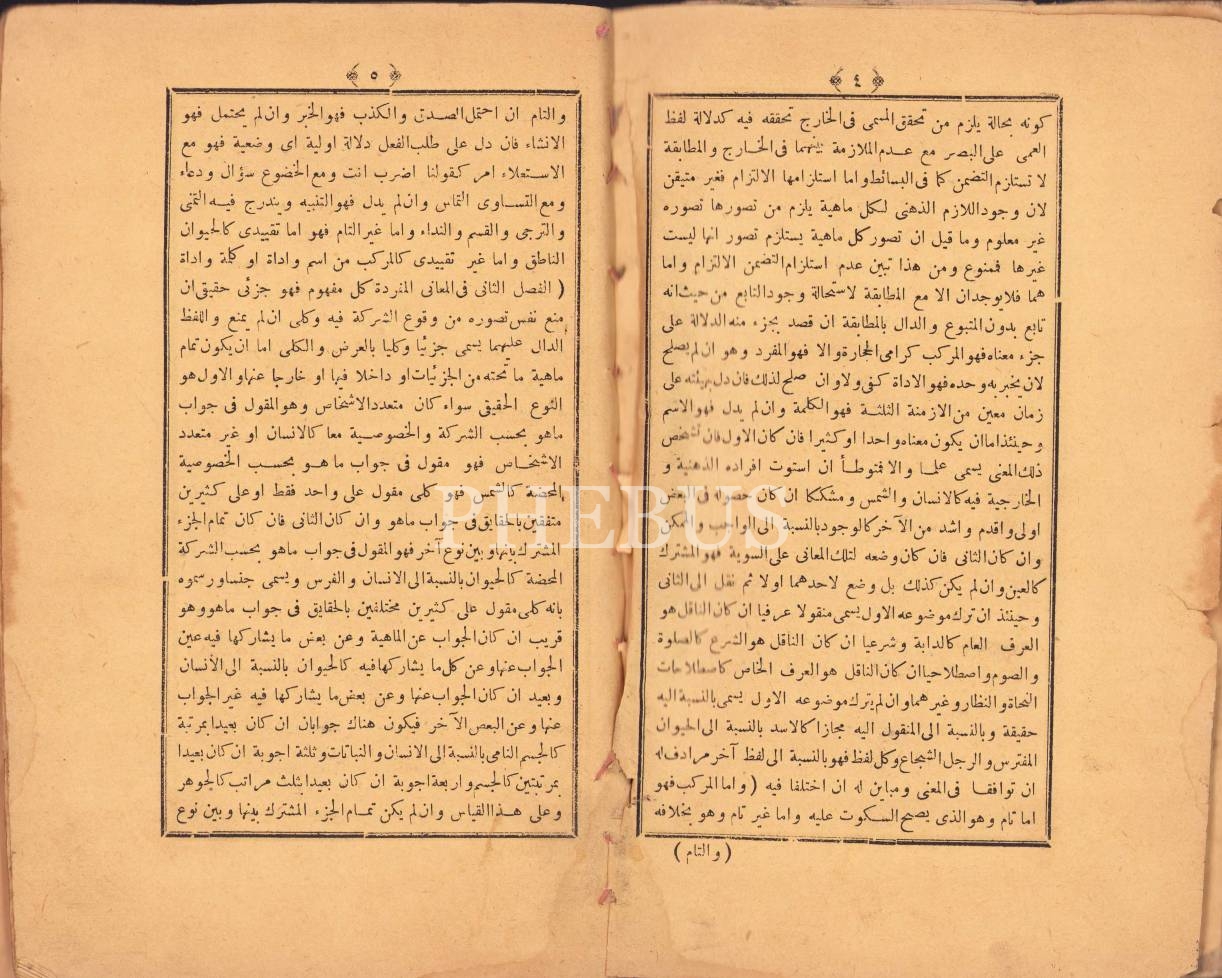 ٤
كونه بحالة يلزم من تحقق المسمى فى الخارج تحققه فيه كدلالة لفظ
العمى على البصر مع عدم الملازمة بينهما فى الخارج والمطابقة
لا تستلزم التضمن كما فى البسائط واما استلزامها الالتزام فغير متيقن
لان وجود اللازم الذهنى لكل ماهية يلزم من تصورها تصوره
غير معلوم وما قيل ان تصور كل ماهية يستلزم تصور انها ليست
غيرها فممنوع ومن هذا تبين عدم استلزام التضمن الالتزام واما
هما فلا يوجدان الا مع المطابقة لاستحالة وجود التابع من حيث انه
تابع بدون المتبوع والدال بالمطابقة ان قصد بجزء منه الدلالة على
جزء معناه فهو المركب كرامى الحجارة والا فهو المفرد وهو ان لم يصلح
لان يخبر به وحده فهو الاداة كفى ولا وان صلح لذلك فان دل بهيئته على
زمان معين من الازمنة الثلثة فهو الكلمة وان لم يدل فهو الاسم
وحينئذ اما ان يكون معناه واحدا او كثيرا فان كان الاول فان تشخص
ذلك المعنى يسمى علما والا فمتوطأ ان استوت افراده الذهنية و
الخارجية فيه كالانسان والشمس ومشككا ان كان حصوله فى البعض
اولى واقدم واشد من الآخر كالوجود بالنسبة الى الواجب والممكن
وان كان الثانى فان كان وضعه لتلك المعانى على السوية فهو المشترك
كالعين وان لم يكن كذلك بل وضع لاحدهما اولا ثم نقل الى الثانى
وحينئذ ان ترك موضوعه الاول يسمى منقولا عرفيا ان كان الناقل هو
العرف العام كالدابة وشرعيا ان كان الناقل هو الشرع كالصلوة
والصوم واصطلاحيا ان كان الناقل هو العرف الخاص كاصطلاحات
النحاة والنظار وغيرهما وان لم يترك موضوعه الاول يسمى بالنسبة اليه
حقيقة وبالنسبة الى المنقول اليه مجازا كالاسد بالنسبة الى الحيوان
المفترس والرجل الشجاع وكل لفظ فهو بالنسبة الى لفظ آخر مرادف له
ان توافقا فى المعنى ومباين له ان اختلفا فيه ( واما المركب فهو
اما تام وهو الذى يصح السكوت عليه واما غير تام وهو بخلافه
( والتام )
٥
والتام ان احتمل الصدق والكذب فهو الخبر وان لم يحتمل فهو
الانشاء فان دل على طلب الفعل دلالة اولية اى وضعية فهو مع
الاستعلاء امر كقولنا اضرب انت ومع الخضوع سؤال ودعاء
ومع التساوى التماس وان لم يدل فهو التنبيه ويندرج فيه التمنى
والترجى والقسم والنداء واما غير التام فهو اما تقييدى كالحيوان
الناطق واما غير تقييدى كالمركب من اسم واداة او كلمة واداة
( الفصل الثانى فى المعانى المفردة كل مفهوم فهو جزئى حقيقى ان
منع نفس تصوره من وقوع الشركة فيه وكلى ان لم يمنع واللفظ
الدال عليهما يسمى جزئيا وكليا بالعرض والكلى اما ان يكون تمام
ماهية ما تحته من الجزئيات او داخلا فيها او خارجا عنها والاول هو
النوع الحقيقى سواء كان متعدد الاشخاص وهو المقول فى جواب
ماهو بحسب الشركة والخصوصية معا كالانسان او غير متعدد
الاشخاص فهو مقول فى جواب ما هو بحسب الخصوصية
المحضة كالشمس فهو كلى مقول على واحد فقط او على كثيرين
متفقين بالحقايق فى جواب ماهو وان كان الثانى فان كان تمام الجزء
المشترك بينها وبين نوع آخر فهو المقول فى جواب ماهو بحسب الشركة
المحضة كالحيوان بالنسبة الى الانسان والفرس ويسمى جنسا ورسموه
بانه كلى مقول على كثيرين مختلفين بالحقايق فى جواب ماهو وهو
قريب ان كان الجواب عن الماهية وعن بعض ما يشاركها فيه عين
الجواب عنها وعن كل ما يشاركها فيه كالحيوان بالنسبة الى الأنسان
وبعيد ان كان الجواب عنها وعن بعض ما يشاركها فيه غير الجواب
عنها وعن البعض الآخر فيكون هناك جوابان ان كان بعيدا بمرتبة
كالجسم النامى بالنسبة الى الانسان والنباتات وثلثة اجوبة ان كان بعيدا
بمرتبتين كالجسم واربعة اجوبة ان كان بعيدا بثلث مراتب كالجوهر
وعلى هذا القياس وان لم يكن تمام الجزء المشترك بينها وبين نوع
PHEBUS